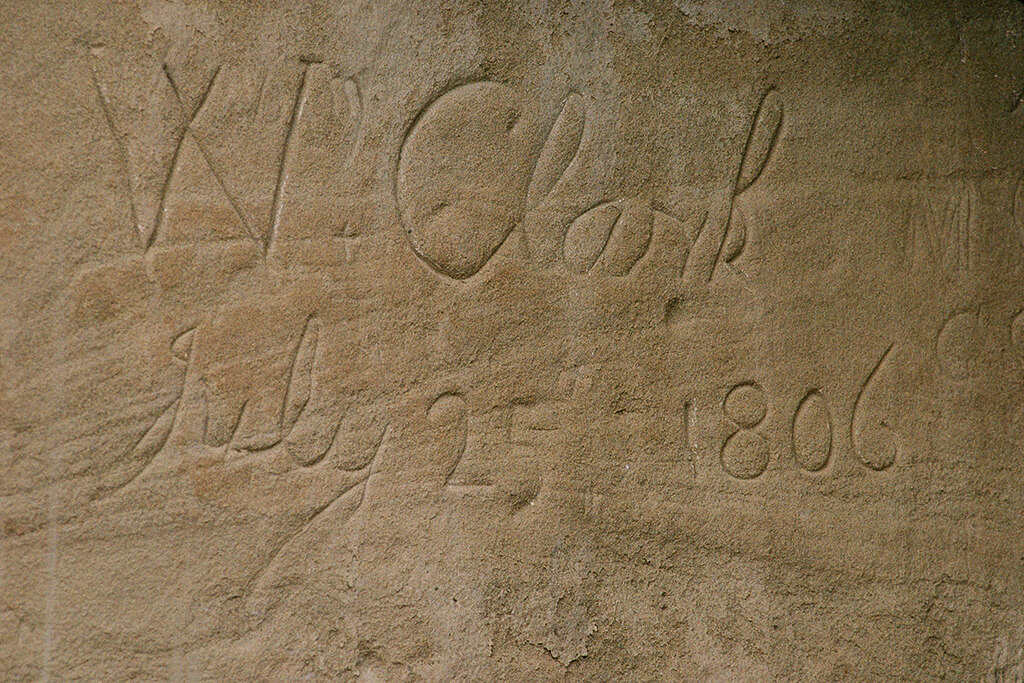 Wm Clark
July 25 1806